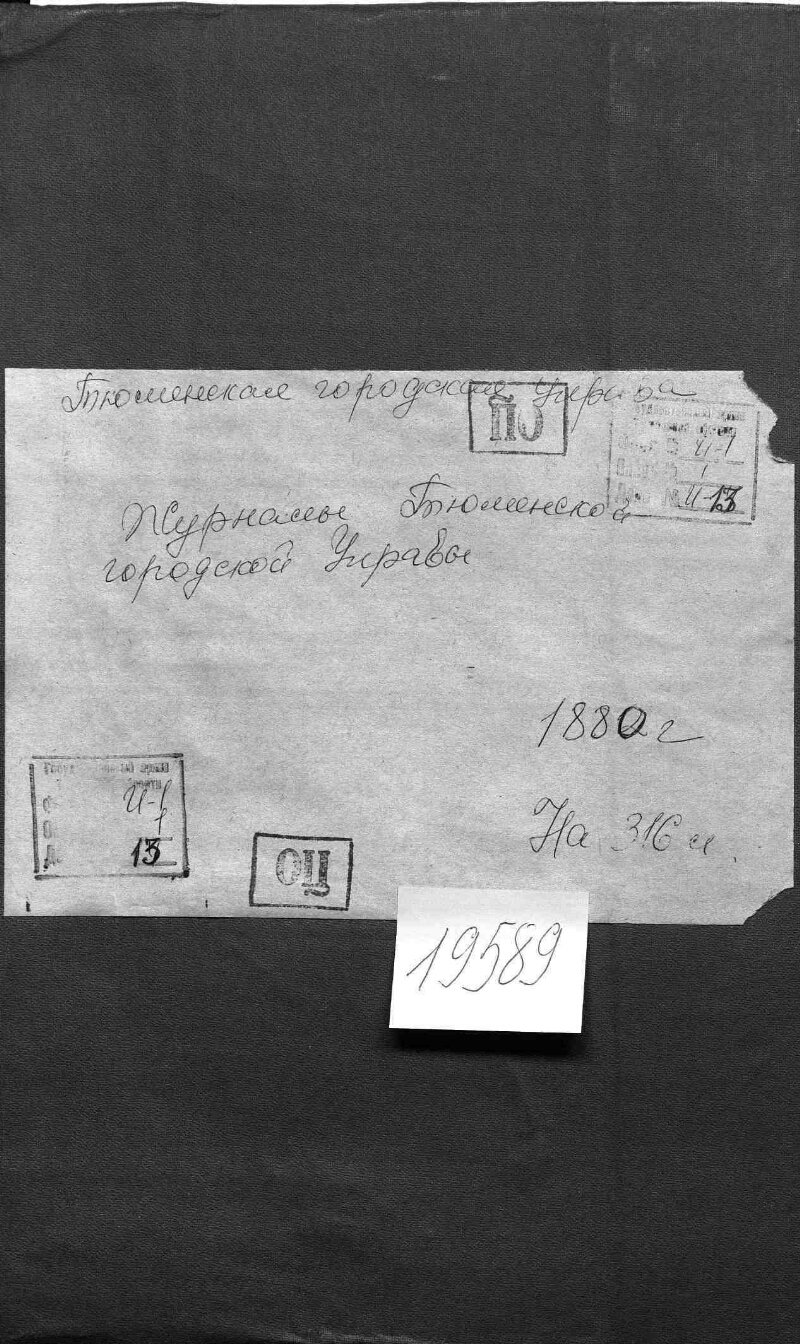 Тюменская городская Управа
ОЦ
И-1
1
И-13
Журналы Тюменской
городской Управы
1880 г
На 316 л.
И-1
1
13
ОЦ
19589